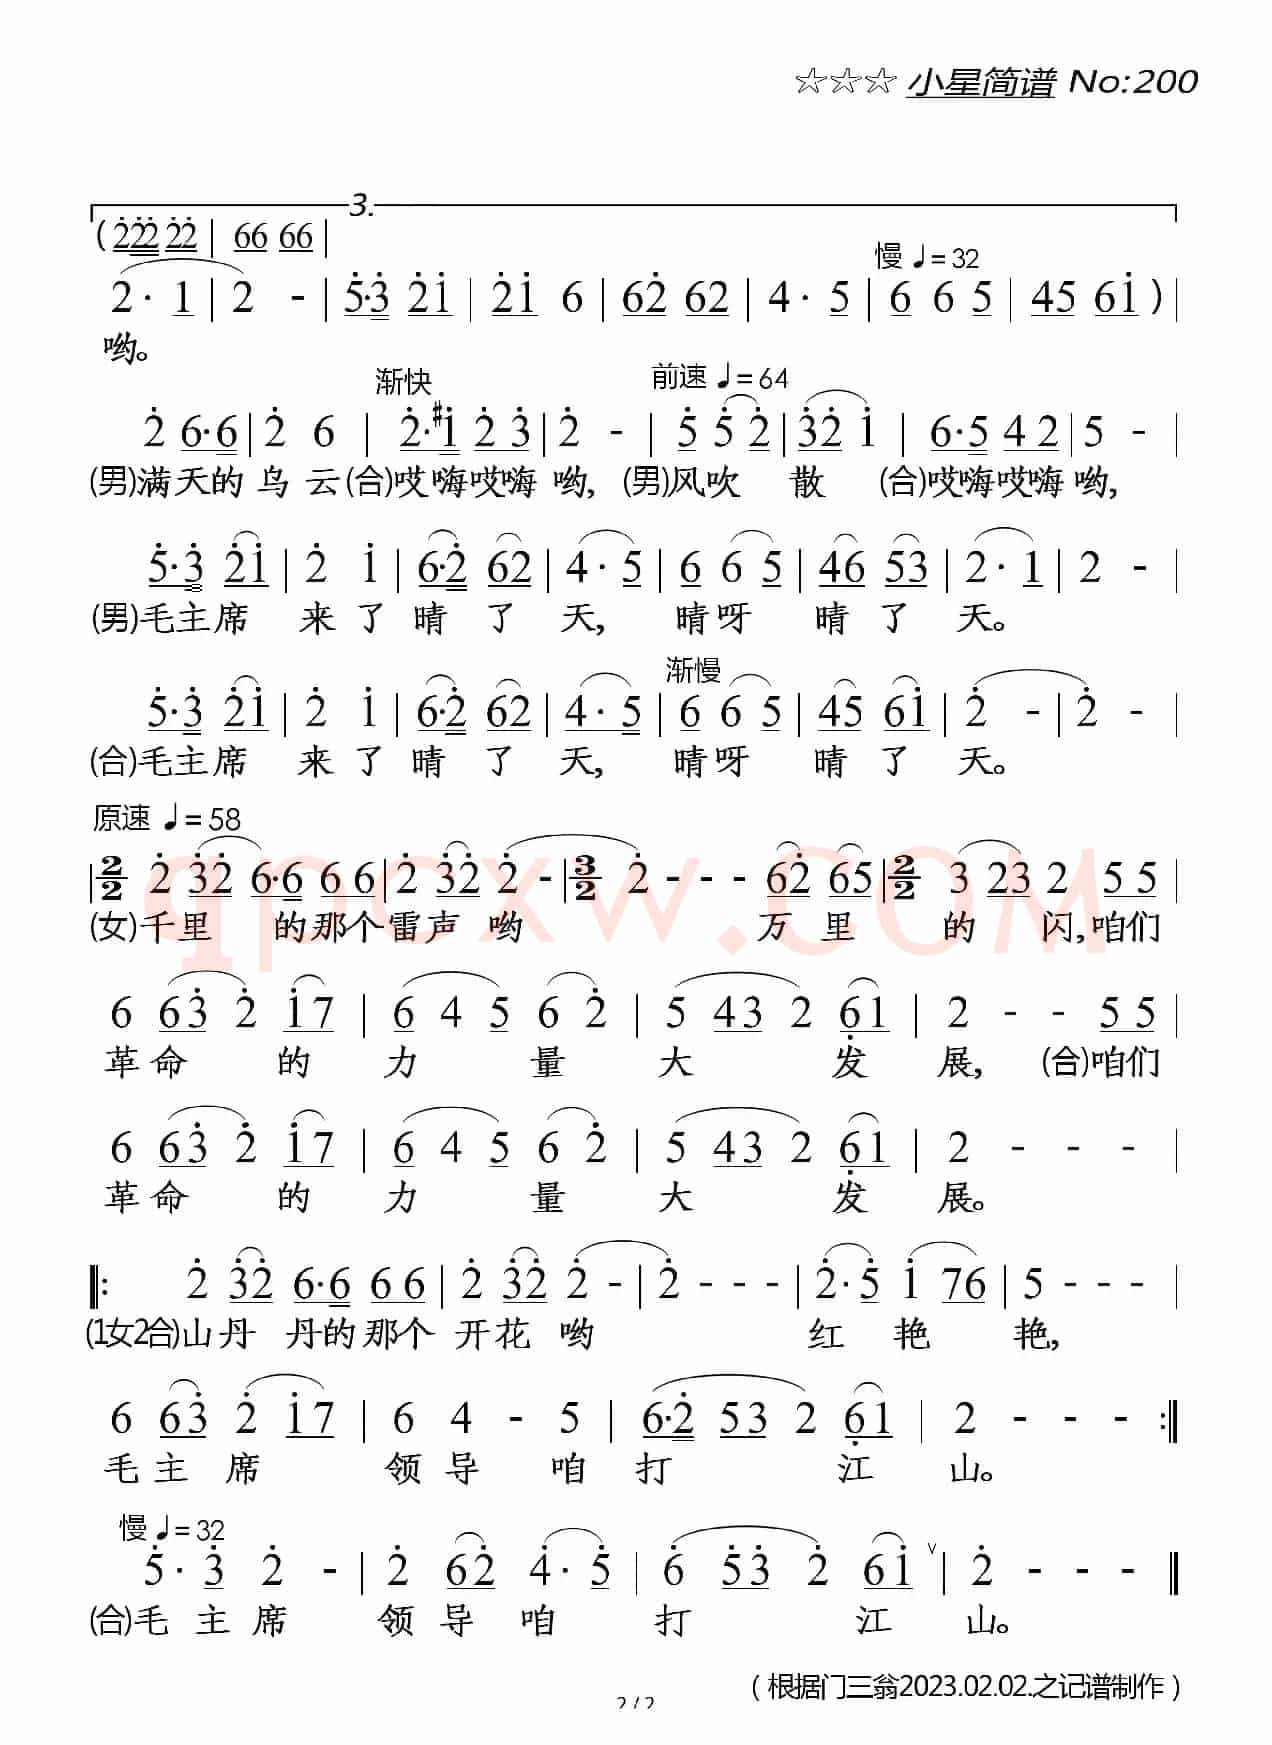 ☆☆☆ 小星简谱 No:200
3.
( 2 2 2 2 2 | 6 6 6 6 |
慢 ♩= 32
2 · 1 | 2 - | 5 · 3 2 1 | 2 1 6 | 6 2 6 2 | 4 · 5 | 6 6 5 | 4 5 6 1 ) |
哟。
渐快 前速 ♩= 64
2 6 · 6 | 2 6 | 2 · #1 2 3 | 2 - | 5 5 2 | 3 2 1 | 6 · 5 4 2 | 5 - |
(男)满天的 乌 云(合)哎嗨哎嗨 哟, (男)风吹 散 (合)哎嗨哎嗨 哟,
5 · 3 2 1 | 2 1 | 6 · 2 6 2 | 4 · 5 | 6 6 5 | 4 6 5 3 | 2 · 1 | 2 - |
(男)毛主席 来 了 晴 了 天, 晴呀 晴 了 天。
渐慢
5 · 3 2 1 | 2 1 | 6 · 2 6 2 | 4 · 5 | 6 6 5 | 4 5 6 1 | 2 - | 2 - |
(合)毛主席 来 了 晴 了 天, 晴呀 晴 了 天。
原速 ♩= 58
| 2/2 2 3 2 6 · 6 6 6 | 2 3 2 2 - | 3/2 2 - - - 6 2 6 5 | 2/2 3 2 3 2 5 5 |
(女)千里 的那个雷声 哟 万 里 的 闪,咱们
6 6 3 2 1 7 | 6 4 5 6 2 | 5 4 3 2 6 1 | 2 - - 5 5 |
革命 的 力 量 大 发 展, (合)咱们
6 6 3 2 1 7 | 6 4 5 6 2 | 5 4 3 2 6 1 | 2 - - - |
革命 的 力 量 大 发 展。
‖: 2 3 2 6 · 6 6 6 | 2 3 2 2 - | 2 - - - | 2 · 5 1 7 6 | 5 - - - |
(1女2合)山丹 丹的那个 开花 哟 红 艳 艳,
6 6 3 2 1 7 | 6 4 - 5 | 6 · 2 5 3 2 6 1 | 2 - - - :‖
毛 主 席 领 导 咱 打 江 山。
慢 ♩= 32
5 · 3 2 - | 2 6 2 4 · 5 | 6 5 3 2 6 1 ∨ | 2 - - - ‖
(合)毛 主 席 领 导 咱 打 江 山。
（根据门三翁2023.02.02.之记谱制作）
2 / 2
qpcxw.com